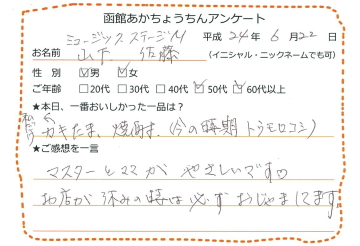 函館あかちょうちんアンケート
ミュージックステージM 平成24年6月22日
お名前 山下 佐藤 (イニシャル・ニックネームでも可)
性別 ☑男 ☑女
ご年齢 □20代 □30代 □40代 ☑50代 ☑60代以上
★本日、一番おいしかった一品は?
カキたま、焼酎、(今の時期トウモロコシ)
★ご感想を一言
マスターとママがやさしいです♡
お店が休みの時は必ずおじゃましてます